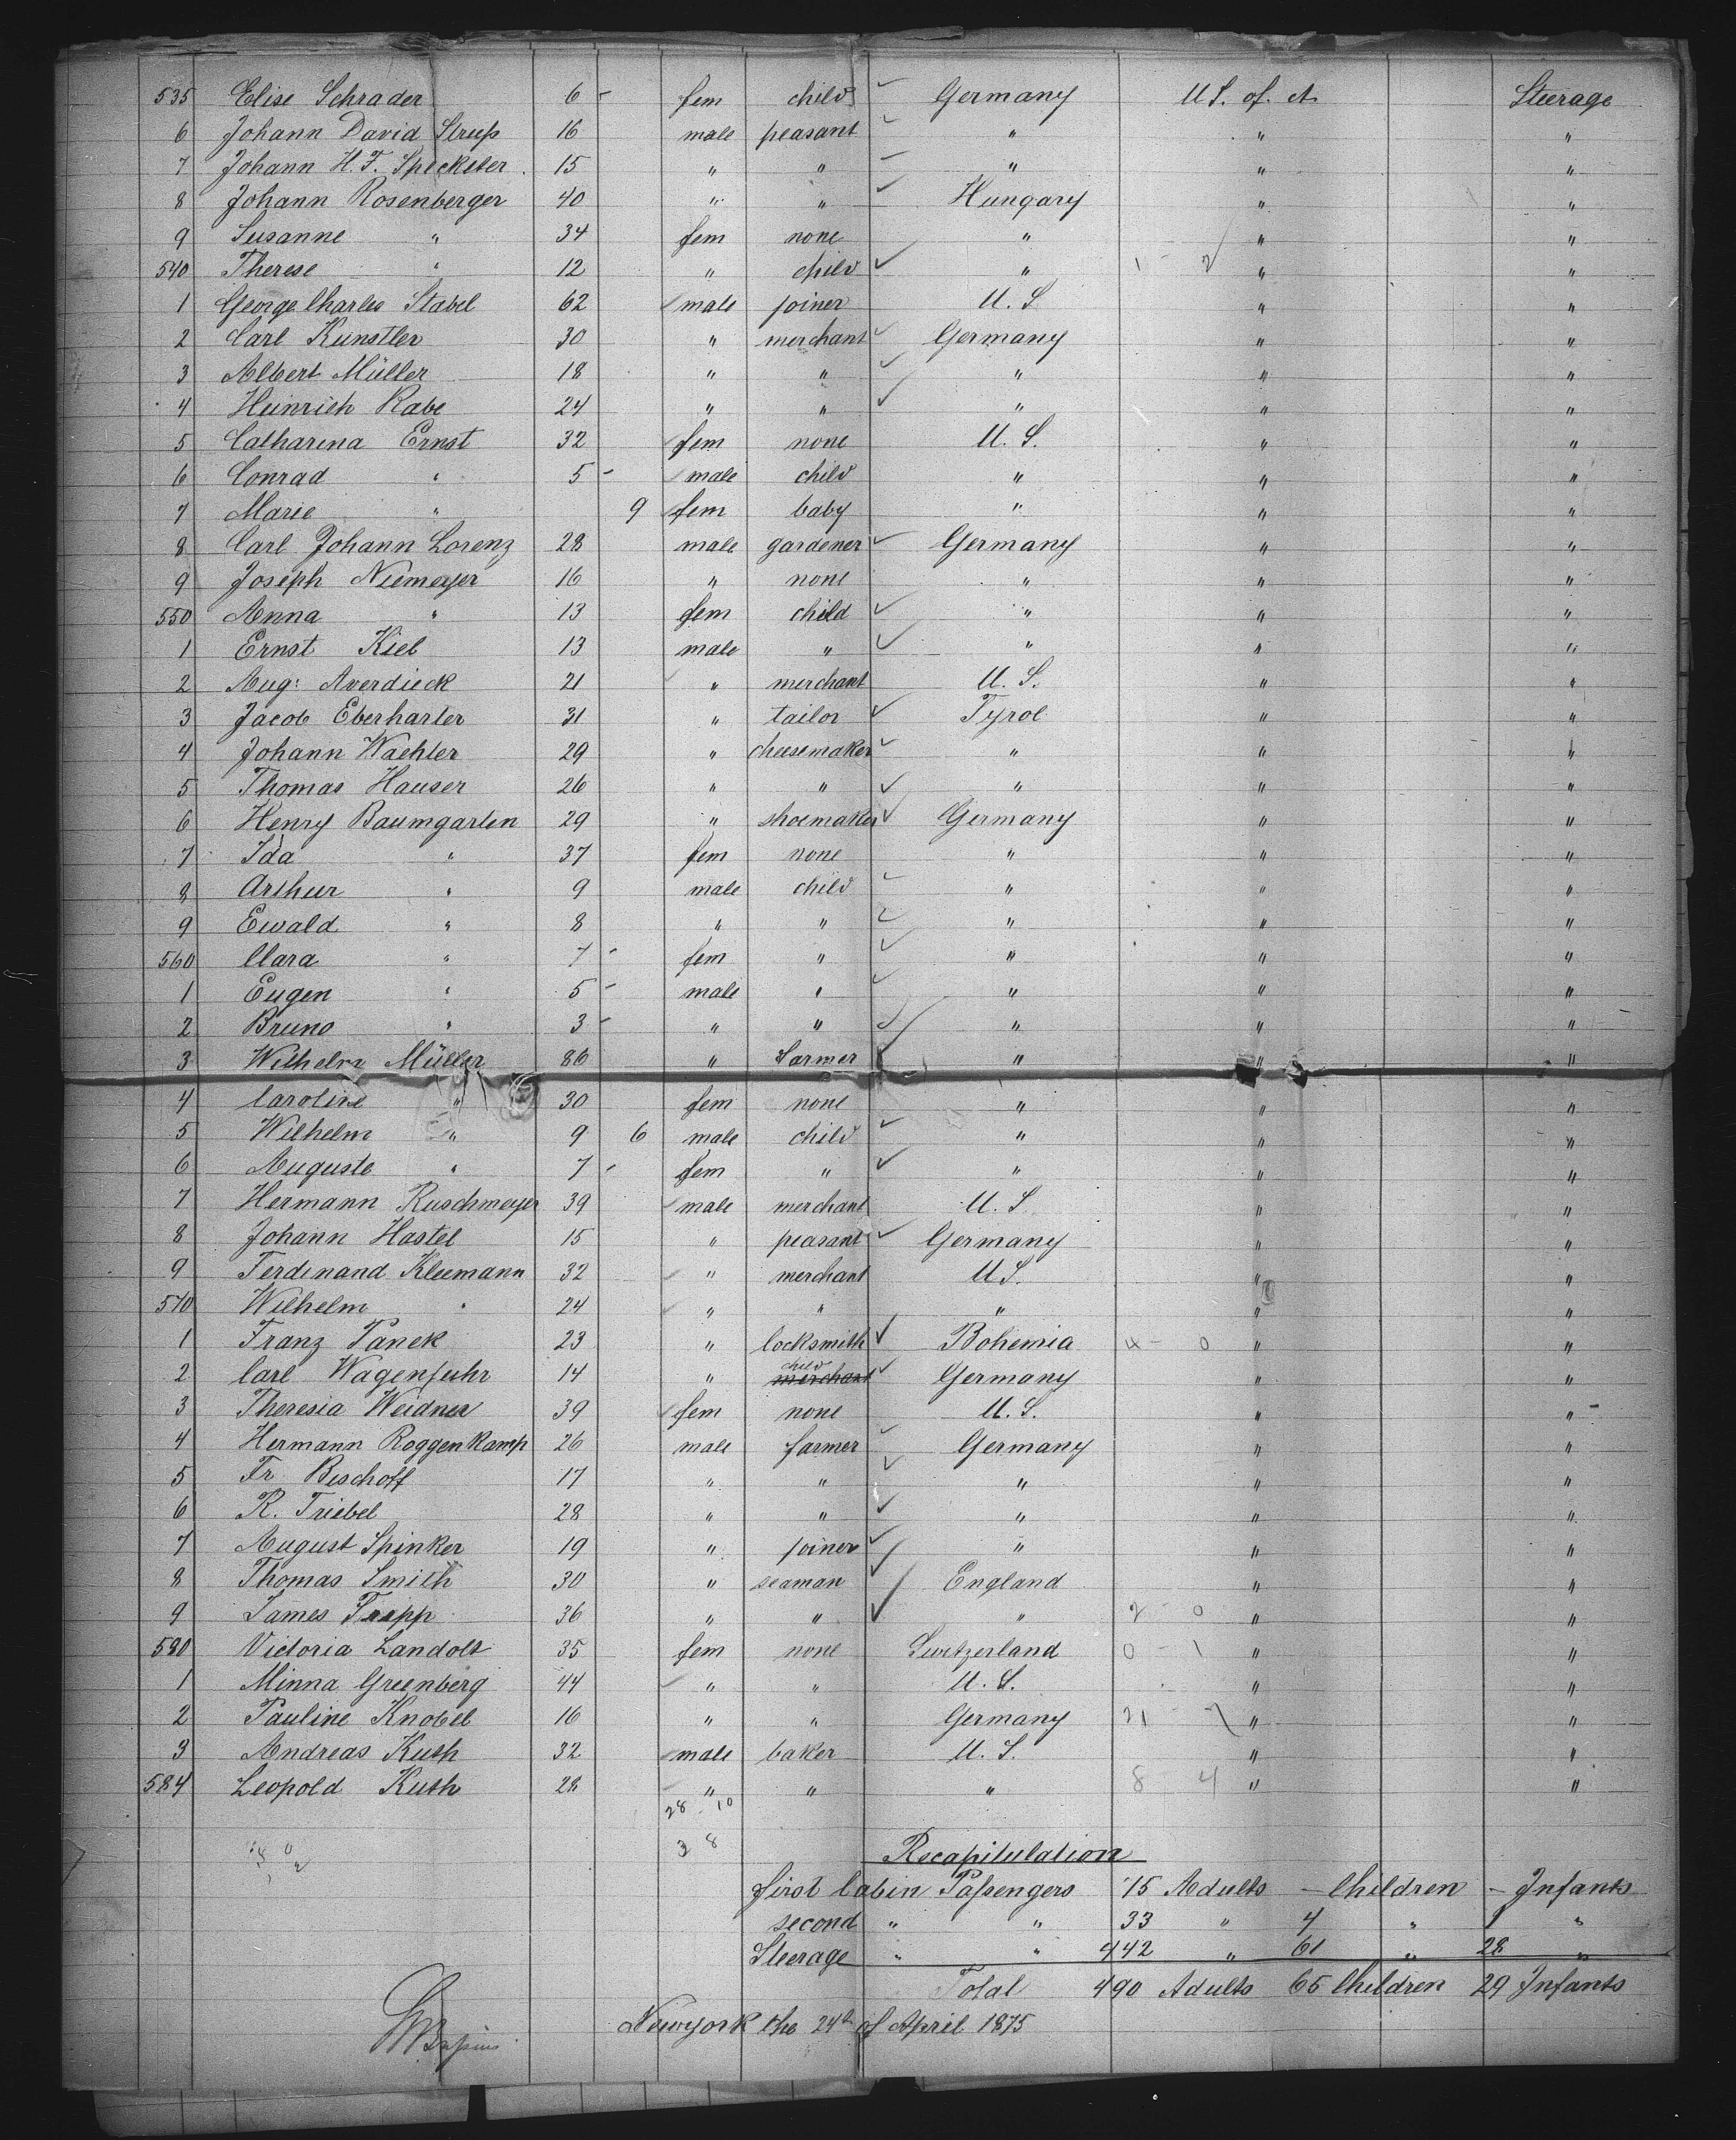 535 Elise Schrader 6 - fem child Germany U S. of. A Steerage
6 Johann David Strup 16 male peasant " " "
7 Johann H. F. Specketer 15 " " " " "
8 Johann Rosenberger 40 " " Hungary " "
9 Susanne " 34 fem none " " "
540 Therese " 12 " child " 1 - 2 " "
1 George Charles Stabel 62 male joiner U. S. " "
2 Carl Künstler 30 " merchant Germany " "
3 Albert Müller 18 " " " " "
4 Heinrich Rabe 24 " " " " "
5 Catharina Ernst 32 fem none U. S. " "
6 Conrad " 5 - male child " " "
7 Marie " 9 fem baby " " "
8 Carl Johann Lorenz 28 male gardener Germany " "
9 Joseph Niemeyer 16 " none " " "
550 Anna " 13 fem child " " "
1 Ernst Kiel 13 male " " " "
2 Aug: Averdieck 21 " merchant U. S. " "
3 Jacob Eberharter 31 " tailor Tyrol " "
4 Johann Wachter 29 " cheesemaker " " "
5 Thomas Hauser 26 " " " " "
6 Henry Baumgarten 29 " shoemaker Germany " "
7 Ida " 37 fem none " " "
8 Arthur " 9 male child " " "
9 Ewald " 8 " " " " "
560 Clara " 7 - fem " " " "
1 Eugen " 5 - male " " " "
2 Bruno " 3 - " " " " "
3 Wilhelm Müller 36 " farmer " " "
4 Caroline " 30 fem none " " "
5 Wilhelm " 9 6 male child " " "
6 Auguste " 7 - fem " " " "
7 Hermann Ruschmeyer 39 male merchant U. S. " "
8 Johann Hastel 15 " peasant Germany " "
9 Ferdinand Kleemann 32 " merchant U S. " "
570 Wilhelm " 24 " " " " "
1 Franz Panek 23 " locksmith Bohemia 4 - 0 " "
2 Carl Wagenfuhr 14 " merchant child Germany " "
3 Theresia Weidner 39 fem none U. S. " "
4 Hermann Roggenkamp 26 male farmer Germany " "
5 Fr Bischoff 17 " " " " "
6 R. Triebel 28 " " " " "
7 August Spinker 19 " joiner " " "
8 Thomas Smith 30 " seaman England " "
9 James Tripp 36 " " " 2 - 0 " "
580 Victoria Landolt 35 fem none Switzerland 0 - 1 " "
1 Minna Greenberg 44 " " U. S. " "
2 Pauline Knobel 16 " " Germany 21 - 7 " "
3 Andreas Kuth 32 male baker U. S. " "
584 Leopold Kuth 28 " " " 8 4 " "
28 - 10
38
Recapitulation
first Cabin Passengers 15 Adults - Children - Infants
second " " 33 " 4 " 1 "
Steerage " " 442 " 61 " 28 "
Total 490 Adults 65 Children 29 Infants
Newyork the 24th of April 1875